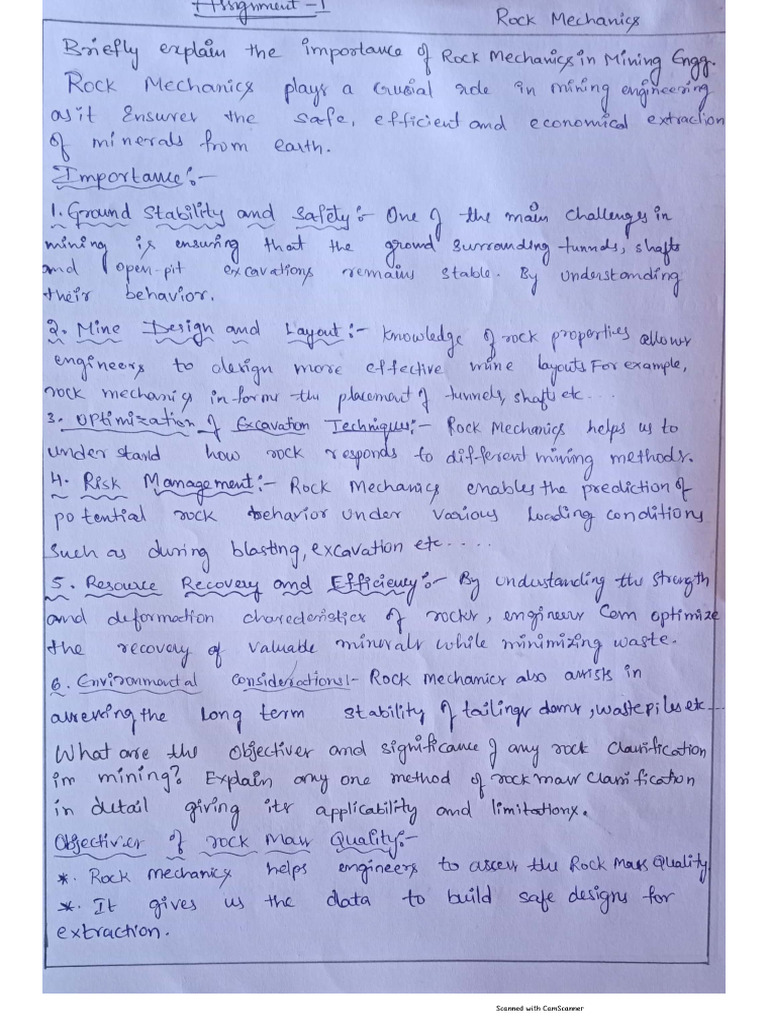 Assignment-1
Rock Mechanics
Briefly explain the importance of Rock Mechanics in Mining Engg.
Rock Mechanics plays a crusial role in mining engineering
as it Ensures the safe, efficient and economical extraction
of minerals from earth.
Importance:-
1. Ground Stability and Safety:- One of the main challenges in
mining is ensuring that the ground surrounding tunnels, shafts
and open-pit excavations remains stable. By understanding
their behavior.
2. Mine Design and Layout:- Knowledge of rock properties allows
engineers to design more effective mine layouts For example,
rock mechanics informs the placement of tunnels, shafts etc...
3. Optimization of Excavation Techniques:- Rock Mechanics helps us to
understand how rock responds to different mining methods.
4. Risk Management:- Rock Mechanics enables the prediction of
potential rock behavior under various loading conditions
such as during blasting, excavation etc.....
5. Resource Recovery and Efficiency:- By understanding the strength
and deformation charecteristics of rocks, engineers can optimize
the recovery of valuable minerals while minimizing waste.
6. Environmental Considerations:- Rock Mechanics also assists in
assessing the long term stability of tailings dams, waste piles etc...
What are the objectives and significance of any rock classification
in mining? Explain any one method of rock mass classification
in detail giving its applicability and limitations.
Objectives of rock Mass Quality:-
*. Rock mechanics helps engineers to assess the Rock Mass Quality
*. It gives us the data to build safe designs for
extraction.
Scanned with CamScanner